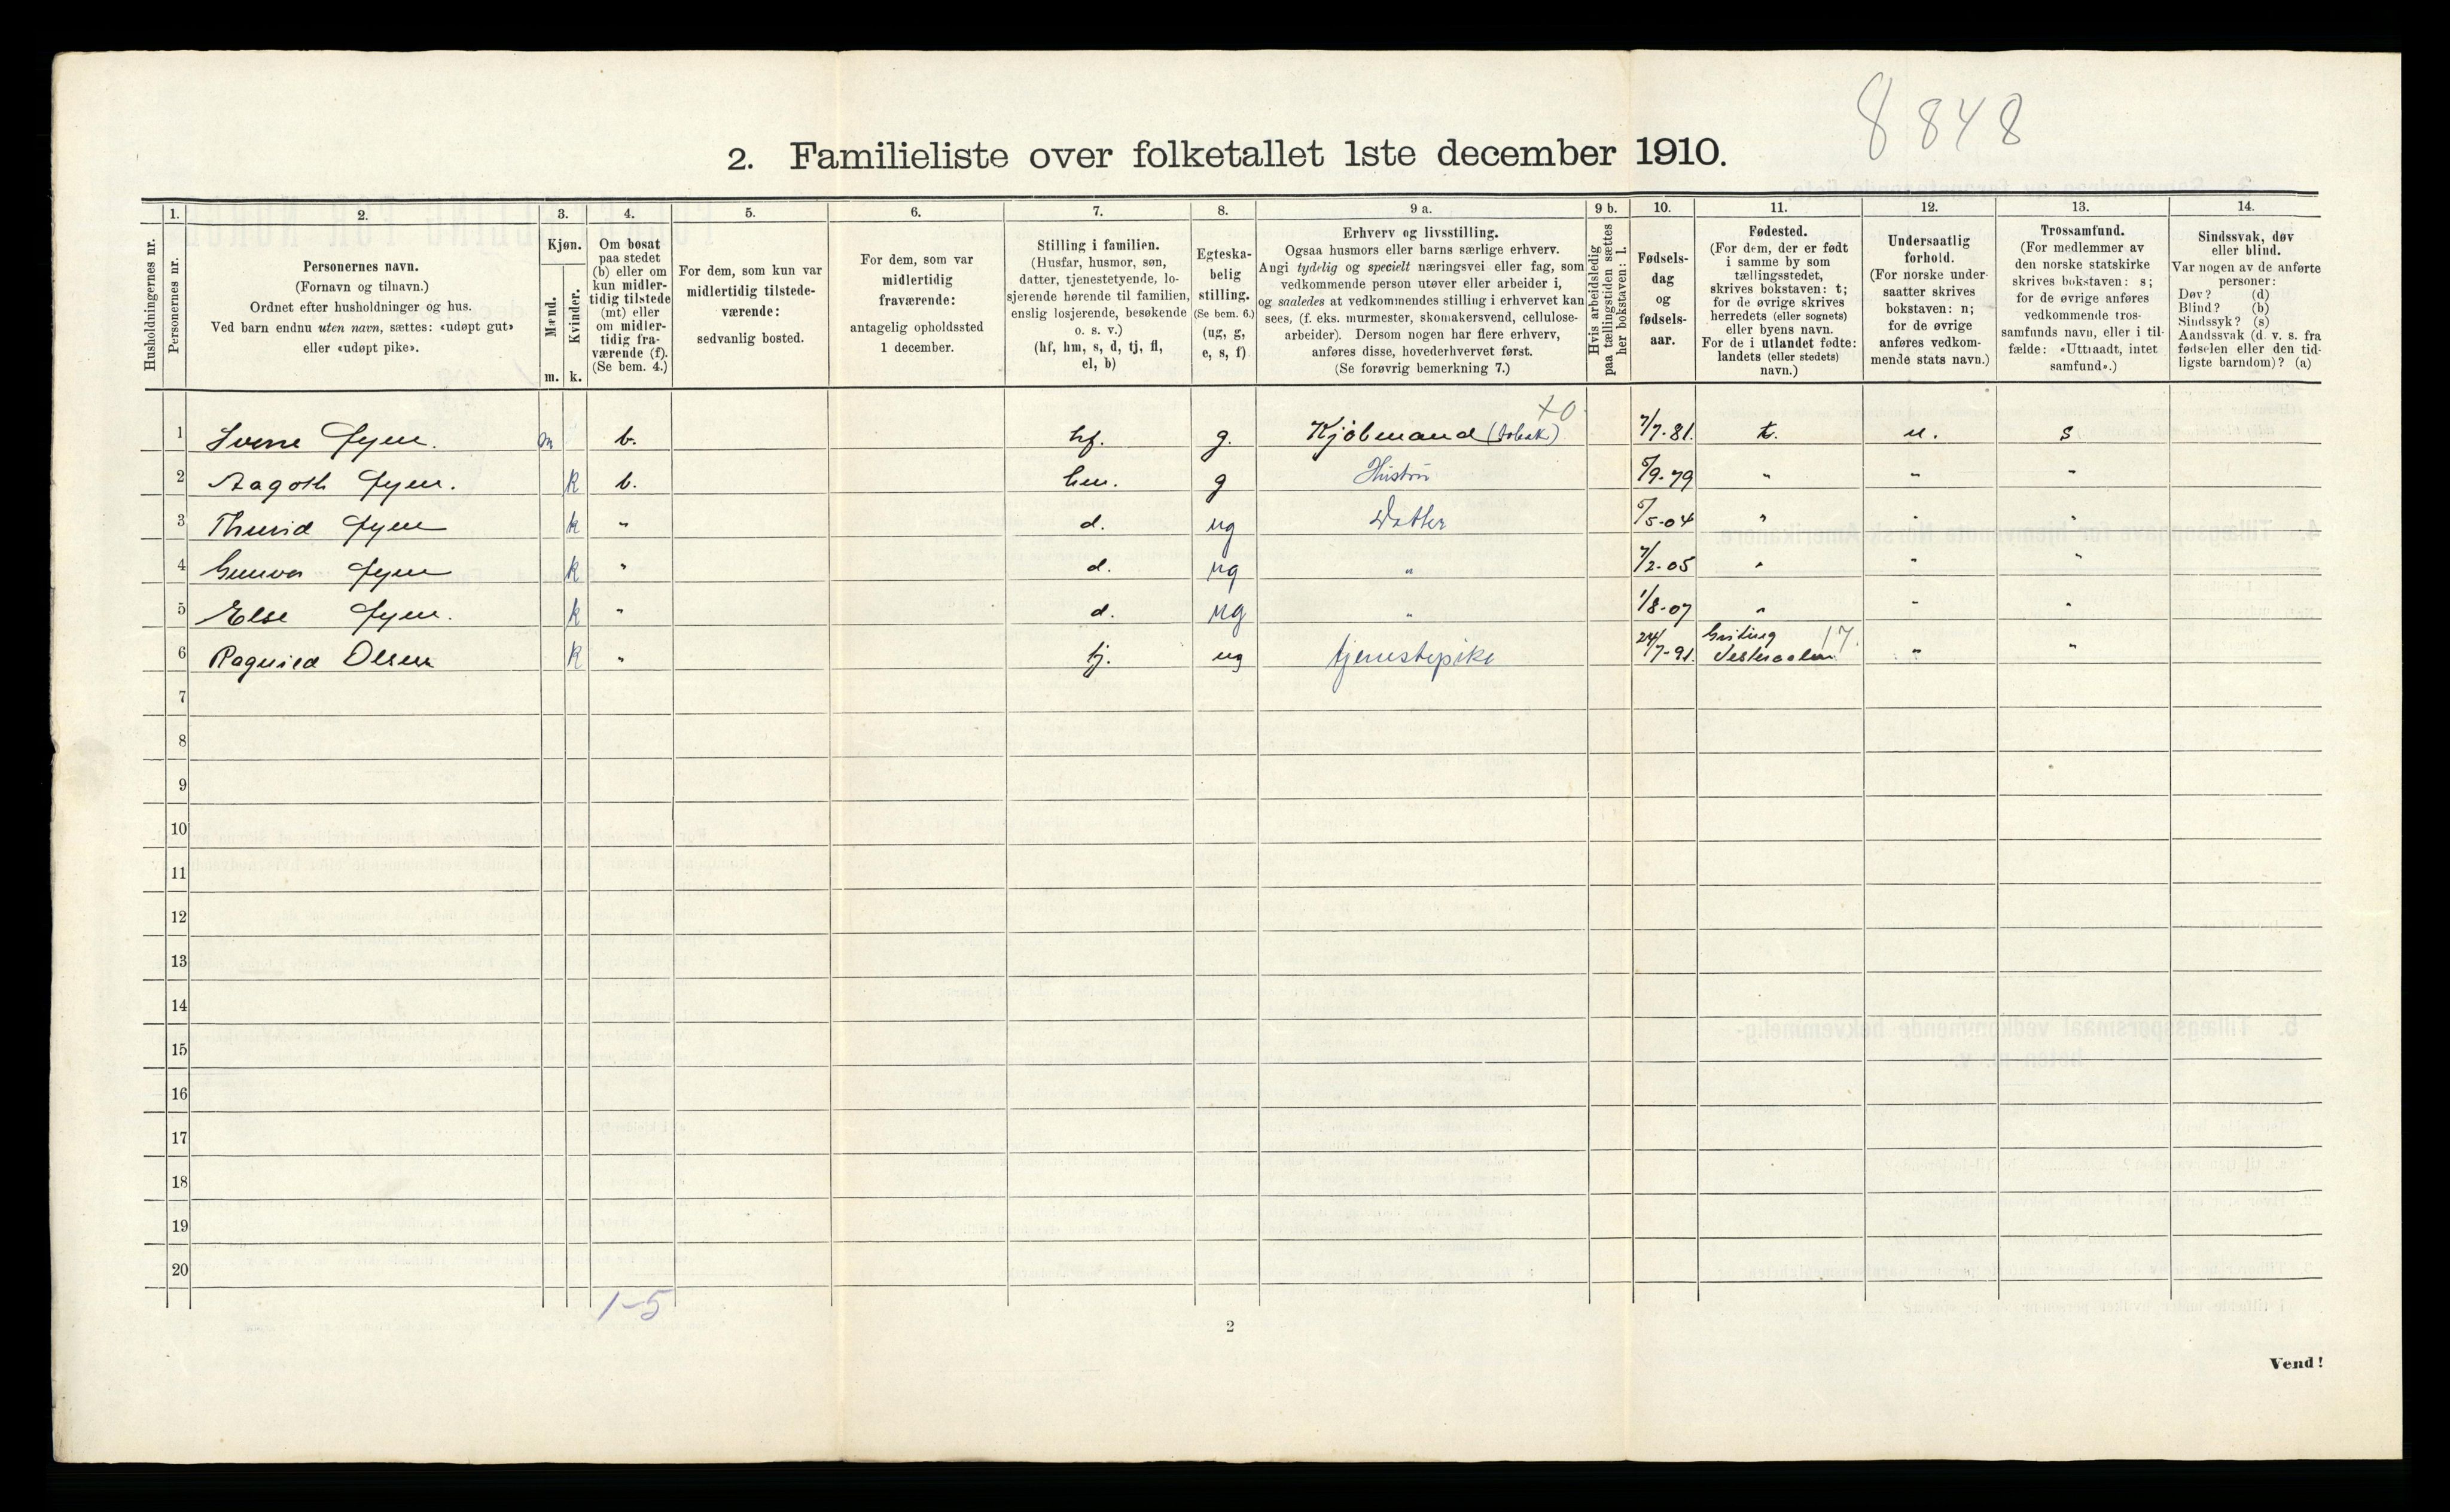 8848
2. Familieliste over folketallet 1ste december 1910.
Husholdningernes nr.
1.
Personernes nr.
2.
Personernes navn.
(Fornavn og tilnavn.)
Ordnet efter husholdninger og hus.
Ved barn endnu uten navn, sættes: «udøpt gut»
eller «udøpt pike».
3.
Kjøn.
Mænd.
Kvinder.
m. k.
4.
Om bosat
paa stedet
(b) eller om
kun midler-
tidig tilstede
(mt) eller
om midler-
tidig fra-
værende (f).
(Se bem. 4.)
5.
For dem, som kun var
midlertidig tilstede-
værende:
sedvanlig bosted.
6.
For dem, som var
midlertidig
fraværende:
antagelig opholdssted
1 december.
7.
Stilling i familien.
(Husfar, husmor, søn,
datter, tjenestetyende, lo-
sjerende hørende til familien,
enslig losjerende, besøkende
o. s. v.)
(hf, hm, s, d, tj, fl,
el, b)
8.
Egteska-
belig
stilling.
(Se bem. 6.)
(ug, g,
e, s, f)
9 a.
Erhverv og livsstilling.
Ogsaa husmors eller barns særlige erhverv.
Angi tydelig og specielt næringsvei eller fag, som
vedkommende person utøver eller arbeider i,
og saaledes at vedkommendes stilling i erhvervet kan
sees, (f. eks. murmester, skomakersvend, cellulose-
arbeider). Dersom nogen har flere erhverv,
anføres disse, hovederhvervet først.
(Se forøvrig bemerkning 7.)
9 b.
Hvis arbeidsledig
paa tællingstiden sættes
her bokstaven: l.
10.
Fødsels-
dag
og
fødsels-
aar.
11.
Fødested.
(For dem, der er født
i samme by som
tællingsstedet,
skrives bokstaven: t;
for de øvrige skrives
herredets (eller sognets)
eller byens navn.
For de i utlandet fødte:
landets (eller stedets)
navn.)
12.
Undersaatlig
forhold.
(For norske under-
saatter skrives
bokstaven: n;
for de øvrige
anføres vedkom-
mende stats navn.)
13.
Trossamfund.
(For medlemmer av
den norske statskirke
skrives bokstaven: s;
for de øvrige anføres
vedkommende tros-
samfunds navn, eller i til-
fælde: «Uttraadt, intet
samfund».)
14.
Sindssvak, døv
eller blind.
Var nogen av de anførte
personer:
Døv? (d)
Blind? (b)
Sindssyk? (s)
Aandssvak (d. v. s. fra
fødselen eller den tid-
ligste barndom)? (a)
1 m b. hf. g. Kjöbmand (tobak) 7/7-81. t. n. s
2 Aagoth k b. hm. g Hustru 5/9-79 " " "
3 Thurid k " d. ug Datter 5/5-04 " " "
4 k " d. ug " 7/2-05 " " "
5 Else k " d. ug " 1/8-07 " " "
6 Ragnild Olsen k " tj. ug tjenestepike 24/7-91. Vesteraalen 17. " "
7
8
9
10
11
12
13
14
15
16
17
18
19
20
1-5
2
Vend!